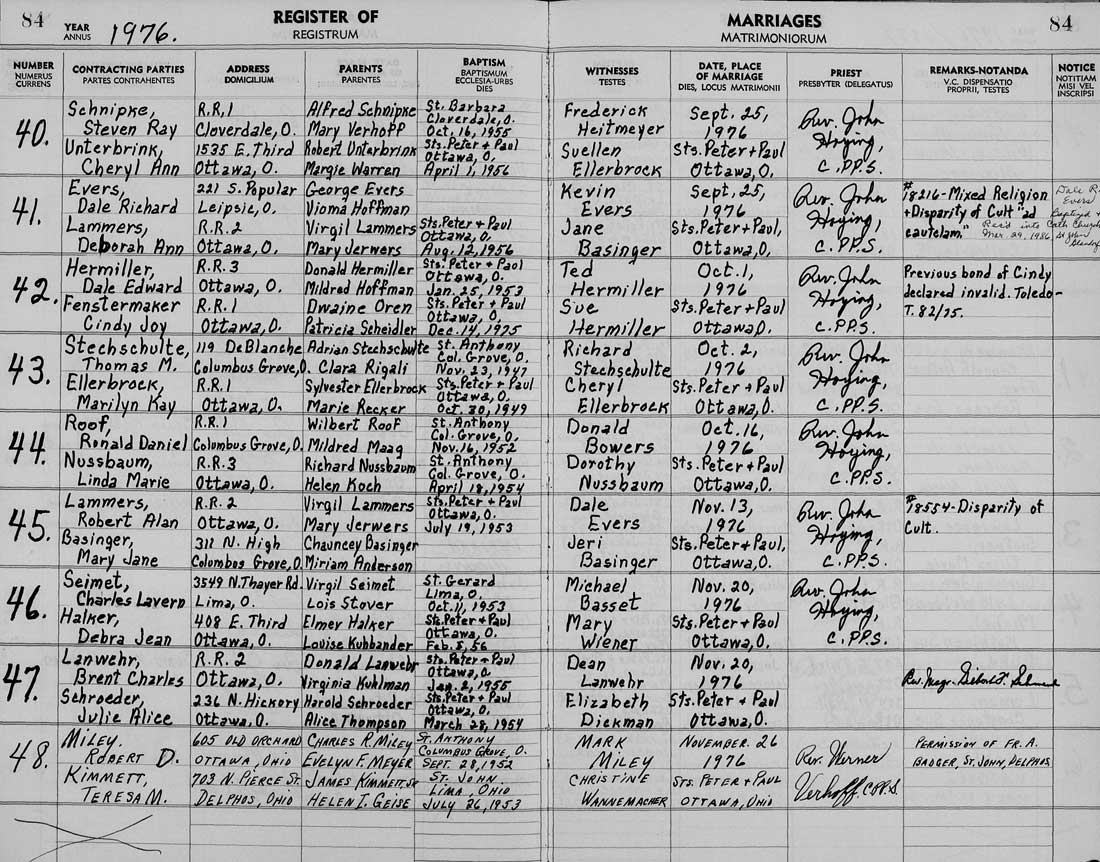 84
YEAR
ANNUS
1976.
REGISTER OF
REGISTRUM
MARRIAGES
MATRIMONIORUM
84
NUMBER
NUMERUS
CURRENS
CONTRACTING PARTIES
PARTES CONTRAHENTES
ADDRESS
DOMICILIUM
PARENTS
PARENTES
BAPTISM
BAPTISMUM
ECCLESIA-URBS
DIES
WITNESSES
TESTES
DATE, PLACE
OF MARRIAGE
DIES, LOCUS MATRIMONII
PRIEST
PRESBYTER (DELEGATUS)
REMARKS-NOTANDA
V.C. DISPENSATIO
PROPRII, TESTES
NOTICE
NOTITIAM
MISI VEL
INSCRIPSI
40.
Schnipke,
Steven Ray
Unterbrink,
Cheryl Ann
R.R.1
Cloverdale, O.
1535 E. Third
Ottawa, O.
Alfred Schnipke
Mary Verhoff
Robert Unterbrink
Margie Warren
St. Barbara
Cloverdale, O.
Oct. 16, 1955
Sts. Peter + Paul
Ottawa, O.
April 1, 1956
Frederick
Heitmeyer
Suellen
Ellerbrock
Sept. 25,
1976
Sts. Peter + Paul
Ottawa, O.
Rev. John
Hoying,
C.PP.S.
41.
Evers,
Dale Richard
Lammers,
Deborah Ann
221 S. Popular
Leipsic, O.
R.R.2
Ottawa, O.
George Evers
Vioma Hoffman
Virgil Lammers
Mary Jerwers
Sts. Peter + Paul
Ottawa, O.
Aug. 12, 1956
Kevin
Evers
Jane
Basinger
Sept. 25,
1976
Sts. Peter + Paul,
Ottawa, O.
Rev. John
Hoying,
C.PP.S.
#18216-Mixed Religion
+Disparity of Cult "ad
cautelam."
Dale R.
Evers
Baptized +
Rec'd into Cath Church
Mar. 29, 1986 St John
42.
Hermiller,
Dale Edward
Fenstermaker
Cindy Joy
R.R.3
Ottawa, O.
R.R.1
Ottawa, O.
Donald Hermiller
Mildred Hoffman
Dwaine Oren
Patricia Scheidler
Sts. Peter + Paul
Ottawa, O.
Jan. 25, 1953
Sts. Peter + Paul
Ottawa, O.
Dec. 14, 1975
Ted
Hermiller
Sue
Hermiller
Oct. 1,
1976
Sts. Peter + Paul
Ottawa O.
Rev. John
Hoying,
C.PP.S.
Previous bond of Cindy
declared invalid. Toledo-
T. 82/75.
43.
Stechschulte,
Thomas M.
Ellerbrock,
Marilyn Kay
119 DeBlanche
Columbus Grove, O.
R.R.1
Ottawa, O.
Adrian Stechschulte
Clara Rigali
Sylvester Ellerbrock
Marie Recker
St. Anthony
Col. Grove, O.
Nov. 23, 1947
Sts. Peter + Paul
Ottawa, O.
Oct. 30, 1949
Richard
Stechschulte
Cheryl
Ellerbrock
Oct. 2,
1976
Sts. Peter + Paul
Ottawa, O.
Rev. John
Hoying,
C.PP.S.
44.
Roof,
Ronald Daniel
Nussbaum,
Linda Marie
R.R.1
Columbus Grove, O.
R.R.3
Ottawa, O.
Wilbert Roof
Mildred Maag
Richard Nussbaum
Helen Koch
St. Anthony
Col. Grove, O.
Nov. 16, 1952
St. Anthony
Col. Grove, O.
April 18, 1954
Donald
Bowers
Dorothy
Nussbaum
Oct. 16,
1976
Sts. Peter + Paul
Ottawa, O.
Rev. John
Hoying,
C.PP.S.
45.
Lammers,
Robert Alan
Basinger,
Mary Jane
R.R.2
Ottawa, O.
311 N. High
Columbus Grove, O.
Virgil Lammers
Mary Jerwers
Chauncey Basinger
Miriam Anderson
Sts. Peter + Paul
Ottawa, O.
July 19, 1953
Dale
Evers
Jeri
Basinger
Nov. 13,
1976
Sts. Peter + Paul,
Ottawa, O.
Rev. John
Hoying,
C.PP.S.
#18554-Disparity of
Cult.
46.
Seimet,
Charles Lavern
Halker,
Debra Jean
3549 N. Thayer Rd.
Lima, O.
408 E. Third
Ottawa, O.
Virgil Seimet
Lois Stover
Elmey Halker
Louise Kuhbander
St. Gerard
Lima, O.
Oct. 11, 1953
Sts. Peter + Paul
Ottawa, O.
Feb. 5, 56
Michael
Basset
Mary
Wiener
Nov. 20,
1976
Sts. Peter + Paul
Ottawa, O.
Rev. John
Hoying,
C.PP.S.
47.
Lanwehr,
Brent Charles
Schroeder,
Julie Alice
R.R.2
Ottawa, O.
236 N. Hickory
Ottawa, O.
Donald Lanwehr
Virginia Kuhlman
Harold Schroeder
Alice Thompson
Sts. Peter + Paul
Ottawa, O.
Jan. 2, 1955
Sts. Peter + Paul
Ottawa, O.
March 28, 1954
Dean
Lanwehr
Elizabeth
Diekman
Nov. 20,
1976
Sts. Peter + Paul
Ottawa, O.
Rev. Msgr.
48.
MILEY,
ROBERT D.
KIMMETT,
TERESA M.
605 OLD ORCHARD
OTTAWA, OHIO
703 N. PIERCE ST.
DELPHOS, OHIO
CHARLES R. MILEY
EVELYN F. MEYER
JAMES KIMMETT, JR
HELEN I. GEISE
ST. ANTHONY
COLUMBUS GROVE, O.
SEPT. 28, 1952
ST. JOHN
LIMA, OHIO
JULY 26, 1953
MARK
MILEY
CHRISTINE
WANNEMACHER
NOVEMBER. 26
1976
STS. PETER + PAUL
OTTAWA, OHIO
Rev. Werner
Verhoff, C.PP.S.
PERMISSION OF FR. A.
BADGER, ST. JOHN, DELPHOS